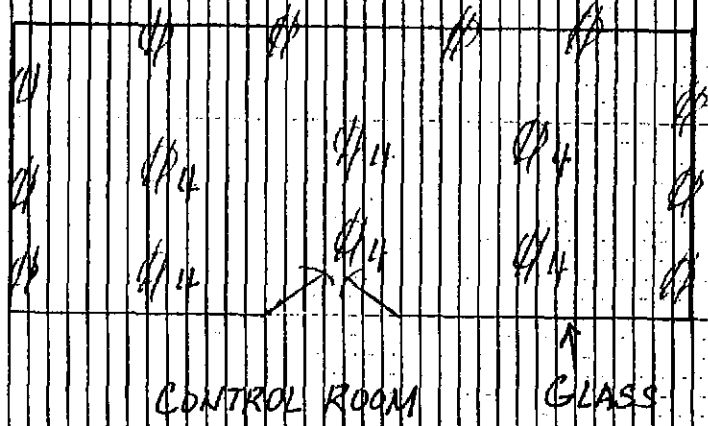 4 4 4
4 4 4
CONTROL ROOM GLASS